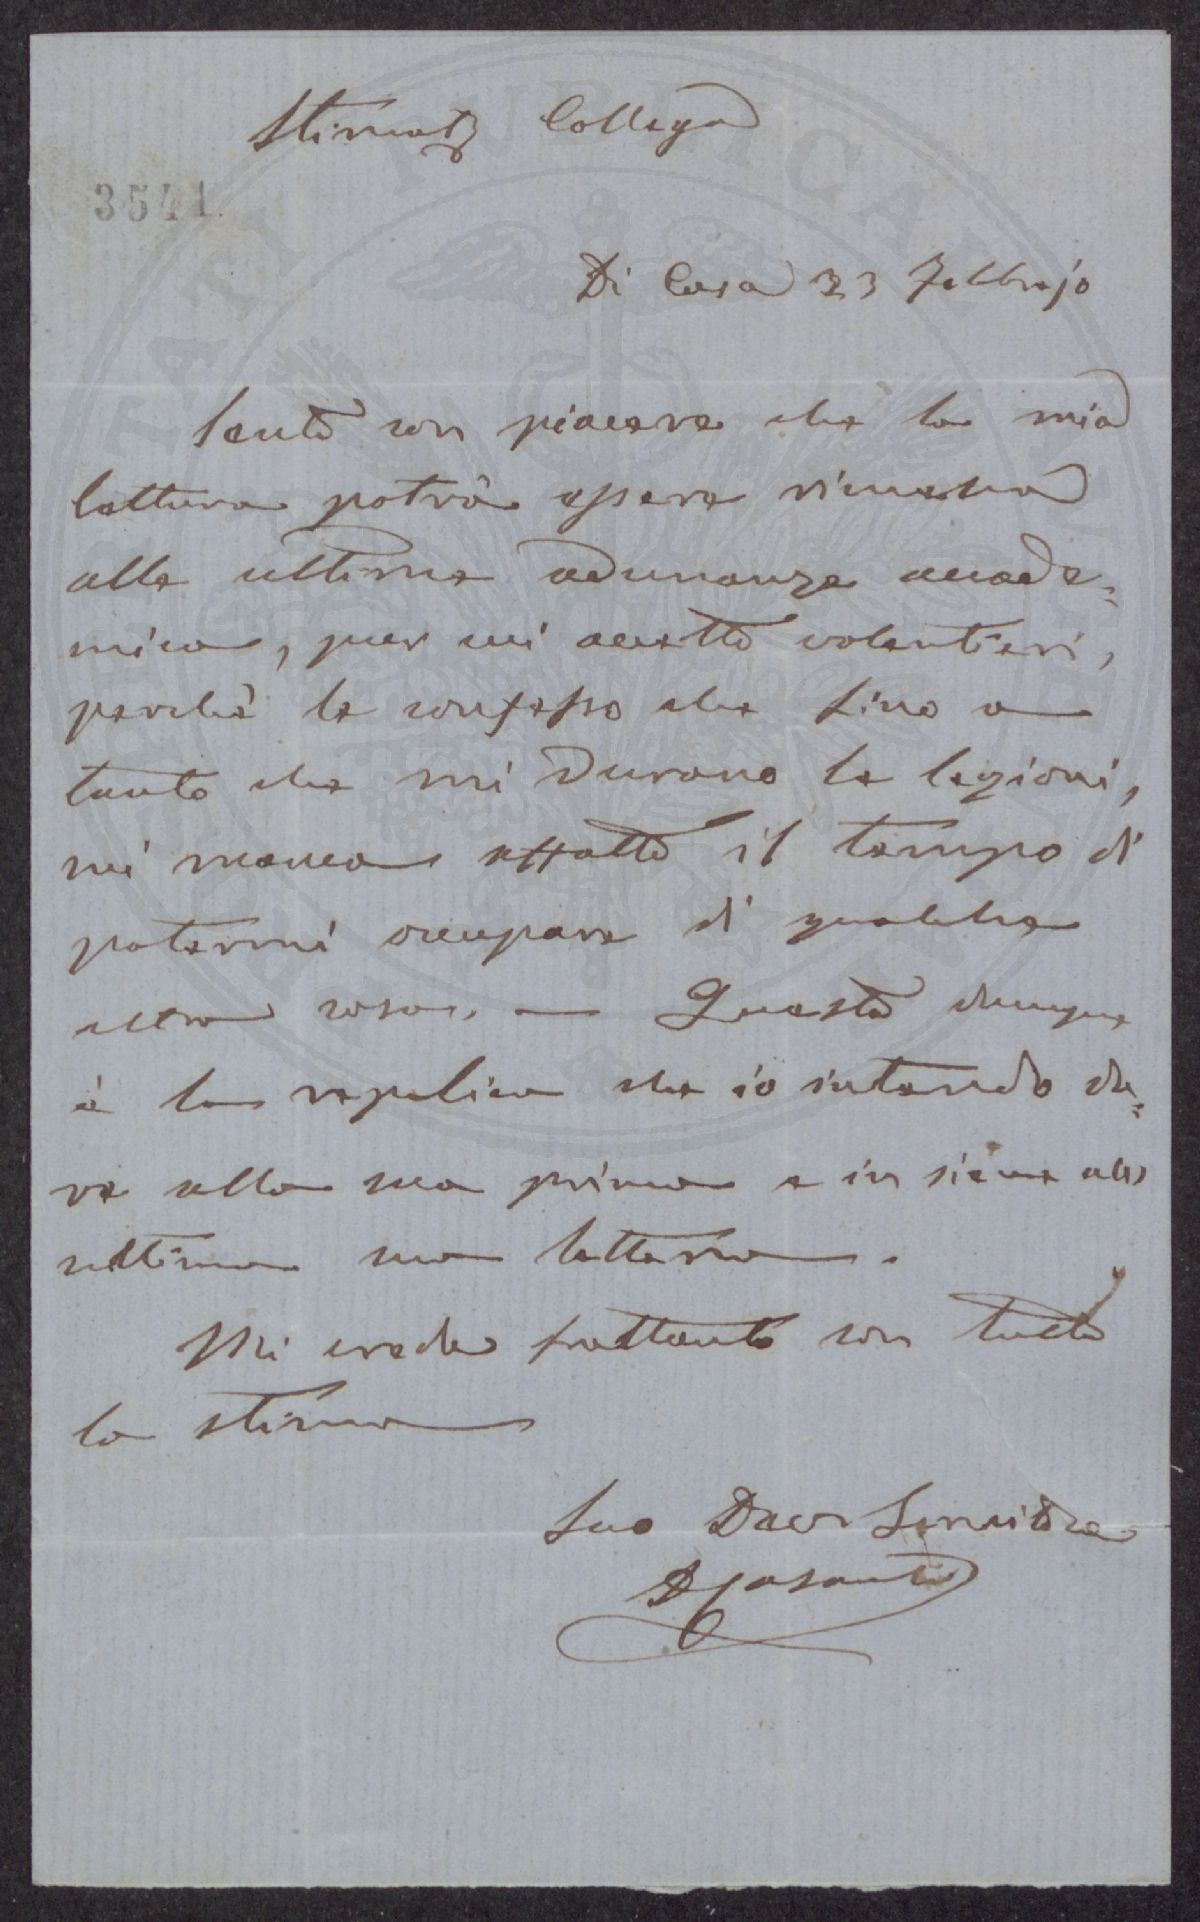 Stimato Collega
3541.
Di Casa 23 Febbrajo
Sento con piacere che la mia
lettura potrà essere rimessa
alle ultime adunanze accade=
mica, per cui accetto volentieri,
perchè le confesso che sino a
tanto che mi durano le lezioni,
mi manca affatto il tempo di
potermi occupare di qualche
altra cosa. — Questa dunque
è la replica che io intendo da=
re alla sua prima e in sieme alla
ultima sua lettera.
Mi creda frattanto con tutta
la stima
Suo Devr Servitore